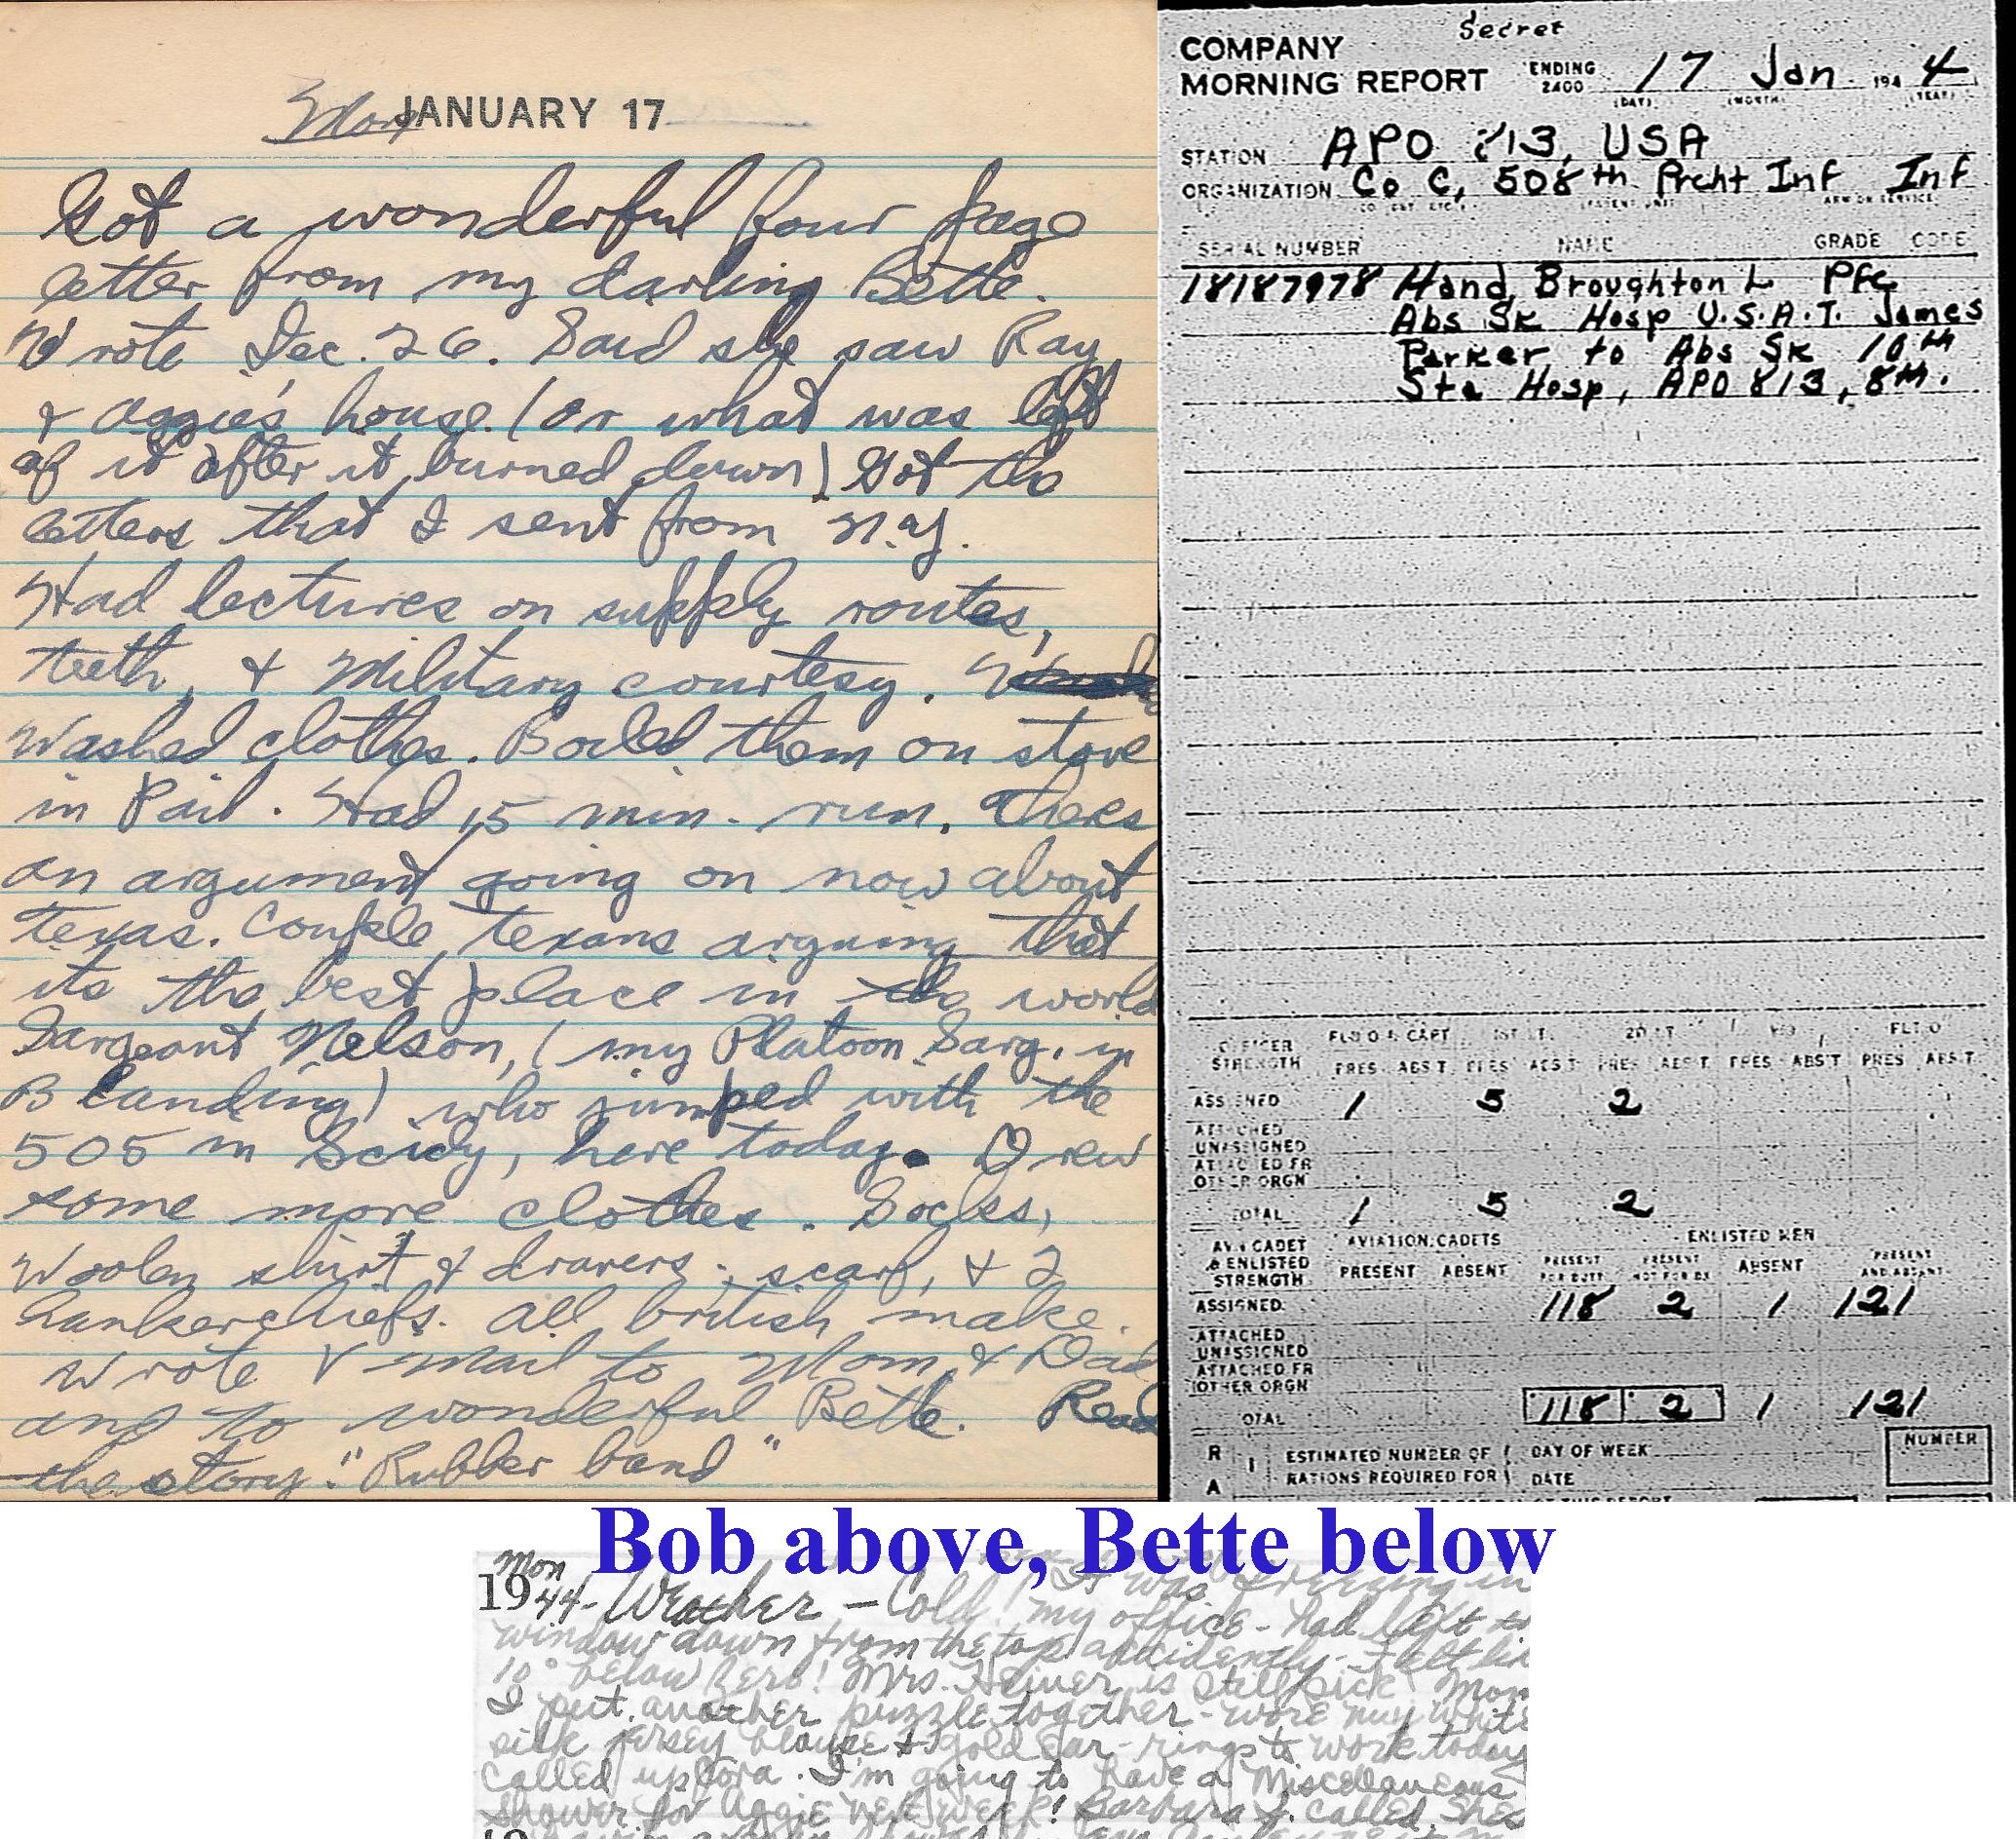 Mon JANUARY 17
Got a wonderful four page
letter from my darling Bette.
Wrote Dec. 26. Said she saw Ray
& Aggie's house. (or what was left
of it after it burned down) Got the
letters that I sent from N.Y.
Had lectures on supply routes,
teeth, & Military courtesy.
Washed clothes. Boiled them on stove
in Pail. Had 15 min. run. Theres
an argument going on now about
Texas. Couple Texans arguing that
its the best place in the world
Sargeant Nelson, (my Platoon Sarg. in
Blanding) who jumped with the
505 in Sicily, here today. Drew
some more clothes. Socks,
Woolen shirt & drawers, scarf, & 2
hankerchiefs. All british make.
Wrote V mail to Mom & Dad
and to wonderful Bette. Read
the story "Rubber band"
Secret
COMPANY
MORNING REPORT ENDING 2400 17 Jan 1944
(DAY) (MONTH) (YEAR)
STATION APO 813, USA
ORGANIZATION Co C, 508th Prcht Inf Inf
SERIAL NUMBER NAME GRADE CODE
18187978 Hand Broughton L Pfc
Abs Sk Hosp U.S.A.T. James
Parker to Abs Sk 10th
Sta Hosp, APO 813, 8th.
OFFICER STRENGTH FLD O & CAPT 1ST LT. 2D LT FLT O
PRES ABS'T PRES ABS'T PRES ABS'T PRES ABS'T PRES ABS'T
ASSIGNED 1 5 2
ATTACHED
UNASSIGNED
ATTACHED FR
OTHER ORGN
TOTAL 1 5 2
AV'N CADET & ENLISTED STRENGTH AVIATION CADETS ENLISTED MEN
PRESENT ABSENT PRESENT FOR DUTY PRESENT NOT FOR DY ABSENT PRESENT AND ABSENT
ASSIGNED 118 2 1 121
ATTACHED
UNASSIGNED
ATTACHED FR
OTHER ORGN
TOTAL 118 2 1 121
R A 1 ESTIMATED NUMBER OF DAY OF WEEK NUMBER
RATIONS REQUIRED FOR DATE
Bob above, Bette below
Mon
1944 - Weather - Cold! It was freezing in
my office - had left
window down from the top accidently - Felt
10° below Zero! Mrs. Heiner is still sick Mom
I put another puzzle together - wore my white
silk jersey blouse & gold ear-rings to work today
called up Cora. I'm going to have a Miscellaneous
Shower for Aggie next week! Barbara J. called. She's